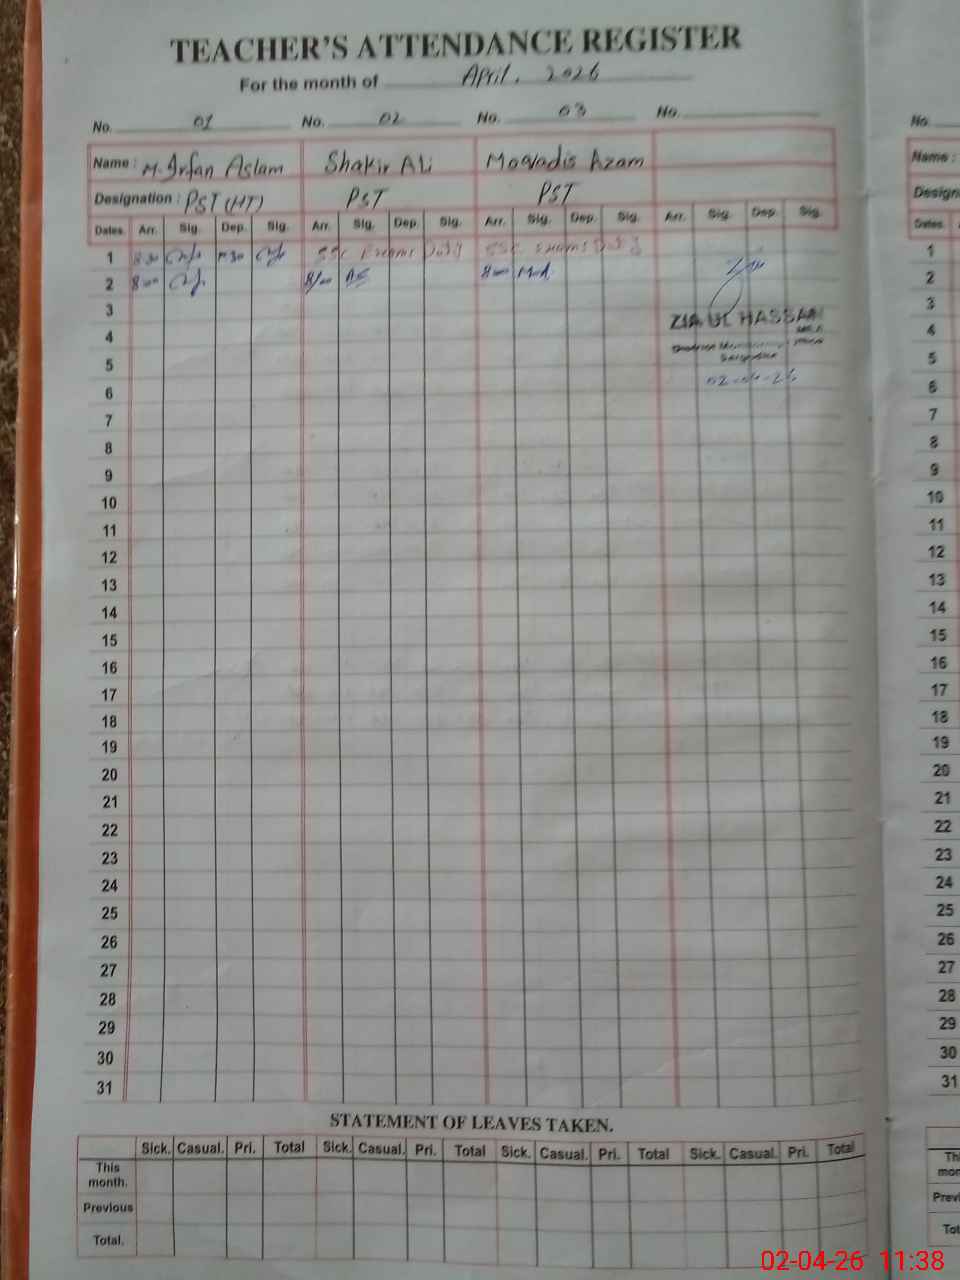 TEACHER'S ATTENDANCE REGISTER
For the month of April, 2026
No. 01 No. 02 No. 03 No. No.
Name : M. Irfan Aslam Shakir Ali Mowadis Azam Name :
Designation : PST (HT) PST PST Design
Dates Arr. Sig. Dep. Sig. Arr. Sig. Dep. Sig. Arr. Sig. Dep. Sig. Arr. Sig. Dep. Sig. Dates
1 8:30 SSC Exams Duty SSC Exams Duty 1
2 8:00 8:00 8:00 2
3 3
ZIA UL HASSAN
4 4
Sargodha
5 5
6 02-04-26 6
7 7
8 8
9 9
10 10
11 11
12 12
13 13
14 14
15 15
16 16
17 17
18 18
19 19
20 20
21 21
22 22
23 23
24 24
25 25
26 26
27 27
28 28
29 29
30 30
31 31
STATEMENT OF LEAVES TAKEN.
Sick. Casual. Pri. Total Sick. Casual. Pri. Total Sick. Casual. Pri. Total Sick. Casual. Pri. Total
This Th
month. mon
Previous Previ
Total. Tot
02-04-26 11:38